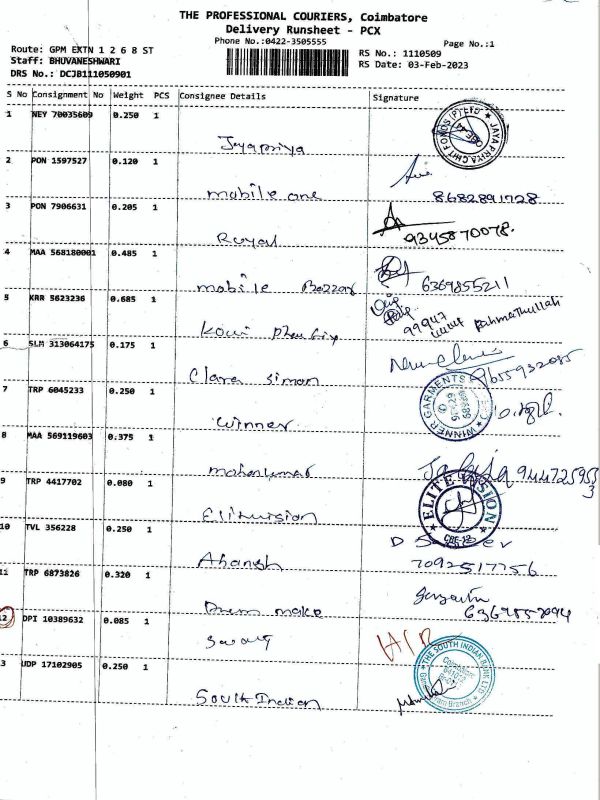 THE PROFESSIONAL COURIERS, Coimbatore
Delivery Runsheet - PCX
Phone No.:0422-3505555
Page No.:1
Route: GPM EXTN 1 2 6 8 ST
Staff: BHUVANESHWARI
DRS No.: DCJB111050901
RS No.: 1110509
RS Date: 03-Feb-2023
S No Consignment No Weight PCS Consignee Details Signature
1 NEY 70035609 0.250 1
Jayapriya
JAYA PRIYA CHIT FUNDS (P) LTD
2 PON 1597527 0.120 1
mobile one 8682891728
3 PON 7906631 0.205 1
Royal 9345870078.
4 MAA 568180001 0.485 1
mobile Bazzar 6369855211
5 KRR 5623236 0.685 1
99947 Rahmathullah
6 SLM 313064175 0.175 1
Clara Simon
7 TRP 6045233 0.250 1
Winner
WINNER GARMENTS
8 MAA 569119603 0.375 1
mohankumar
9 TRP 4417702 0.080 1
Elitvision
ELITE VISION
CBE-12
10 TVL 356228 0.250 1
Ahansh 7092517756
11 TRP 6873826 0.320 1
Drum make
12 DPI 10389632 0.085 1
3 UDP 17102905 0.250 1
South Indian
THE SOUTH INDIAN BANK LTD
Coimbatore
Branch